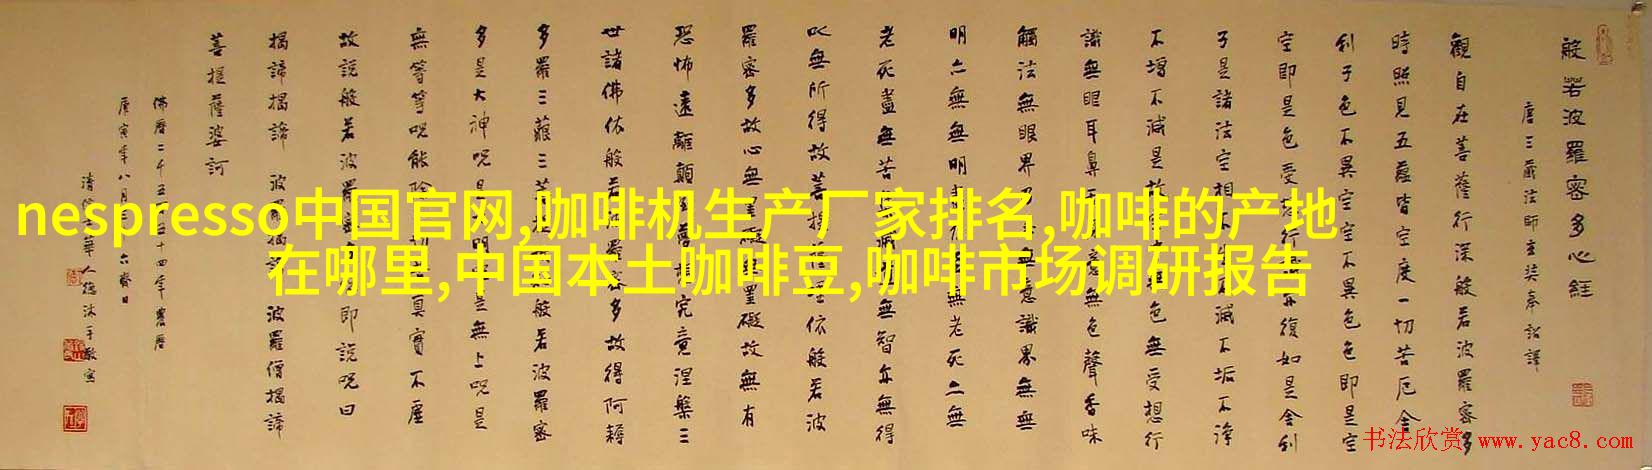 nespresso中国官网,咖啡机生产厂家排名,咖啡的产地
在哪里,中国本土咖啡豆,咖啡市场调研报告
般若波羅密多心經
唐三藏法師玄奘奉詔譯
觀自在菩薩行深般若波羅密多
時照見五蘊皆空度一切苦厄舍
利子色不異空空不異色色即是空
空即是色受行亦復如是舍利
子是諸法空相不滅不垢不淨
不增不減是故色無受想行
識無眼耳鼻意無色聲香味
觸法無眼界意識界無無
明亦無無明無老死亦無
老死盡無苦滅無智亦無得
以無所得故菩提依般若波
羅密多故心無罣礙罣礙故無有
恐怖遠離顛夢想究竟涅槃三
世諸佛依般若羅密多故得阿耨
多羅三藐三菩般若波羅密
多是大神咒是明是無上咒是
無等等咒能除一切真實不虛
故說般若波羅密即說咒曰
揭諦揭諦 波羅諦 波羅僧揭諦
菩提薩婆訶
佛曆二千五百五十四年農曆
庚寅年八月六齋日
清信華人德沐手敬寫
书法欣赏 www.yac8.com